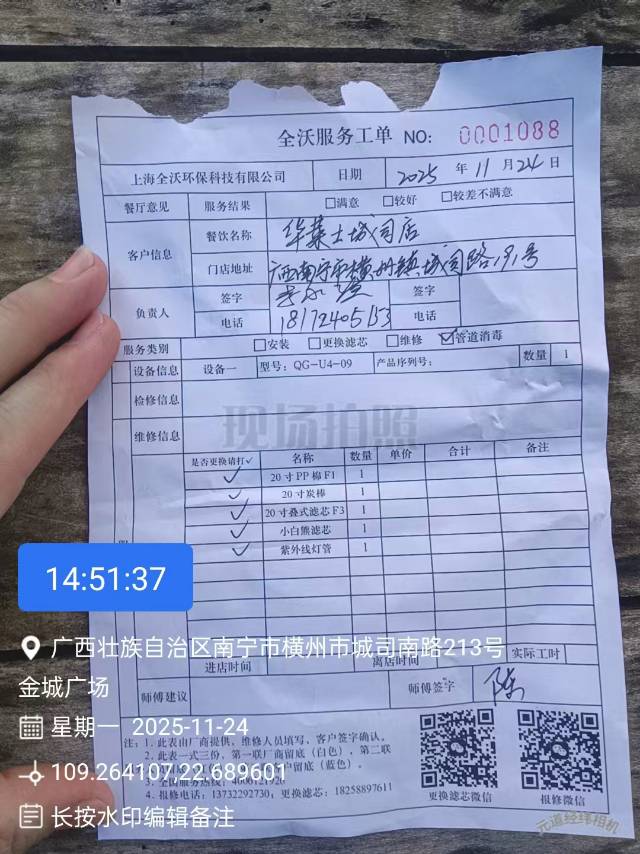 全沃服务工单 NO: 0001088
上海全沃环保科技有限公司 日期 2025 年 11 月 24 日
餐厅意见 服务结果 □满意 □较好 □较差不满意
客户信息 餐饮名称 华莱士城司店
门店地址 广西南宁市横州镇城司路191号
负责人 签字 签字
电话 18172405153 电话
服务类别 □安装 □更换滤芯 □维修 ☑管道消毒
设备信息 设备一 型号: QG-U4-09 产品序列号: 数量 1
检修信息
现场拍照
维修信息
是否更换请打✓ 名称 数量 单价 合计 备注
✓ 20寸PP棉F1 1
✓ 20寸炭棒 1
✓ 20寸叠式滤芯F3 1
✓ 小白熊滤芯 1
✓ 紫外线灯管 1
14:51:37
广西壮族自治区南宁市横州市城司南路213号
金城广场
进店时间 离店时间 实际工时
师傅建议 师傅签字 陈
星期一 2025-11-24
注: 1. 此表由厂商提供, 维修人员填写, 客户签字确认。
2. 此表一式三份, 第一联厂商留底(白色), 第二联
户留底(蓝色)。
109.264107,22.689601
3. 全国服务热线: 4000121720
4. 报修电话: 13732292730; 更换滤芯: 18258897611
更换滤芯微信 报修微信
长按水印编辑备注
元道经纬相机